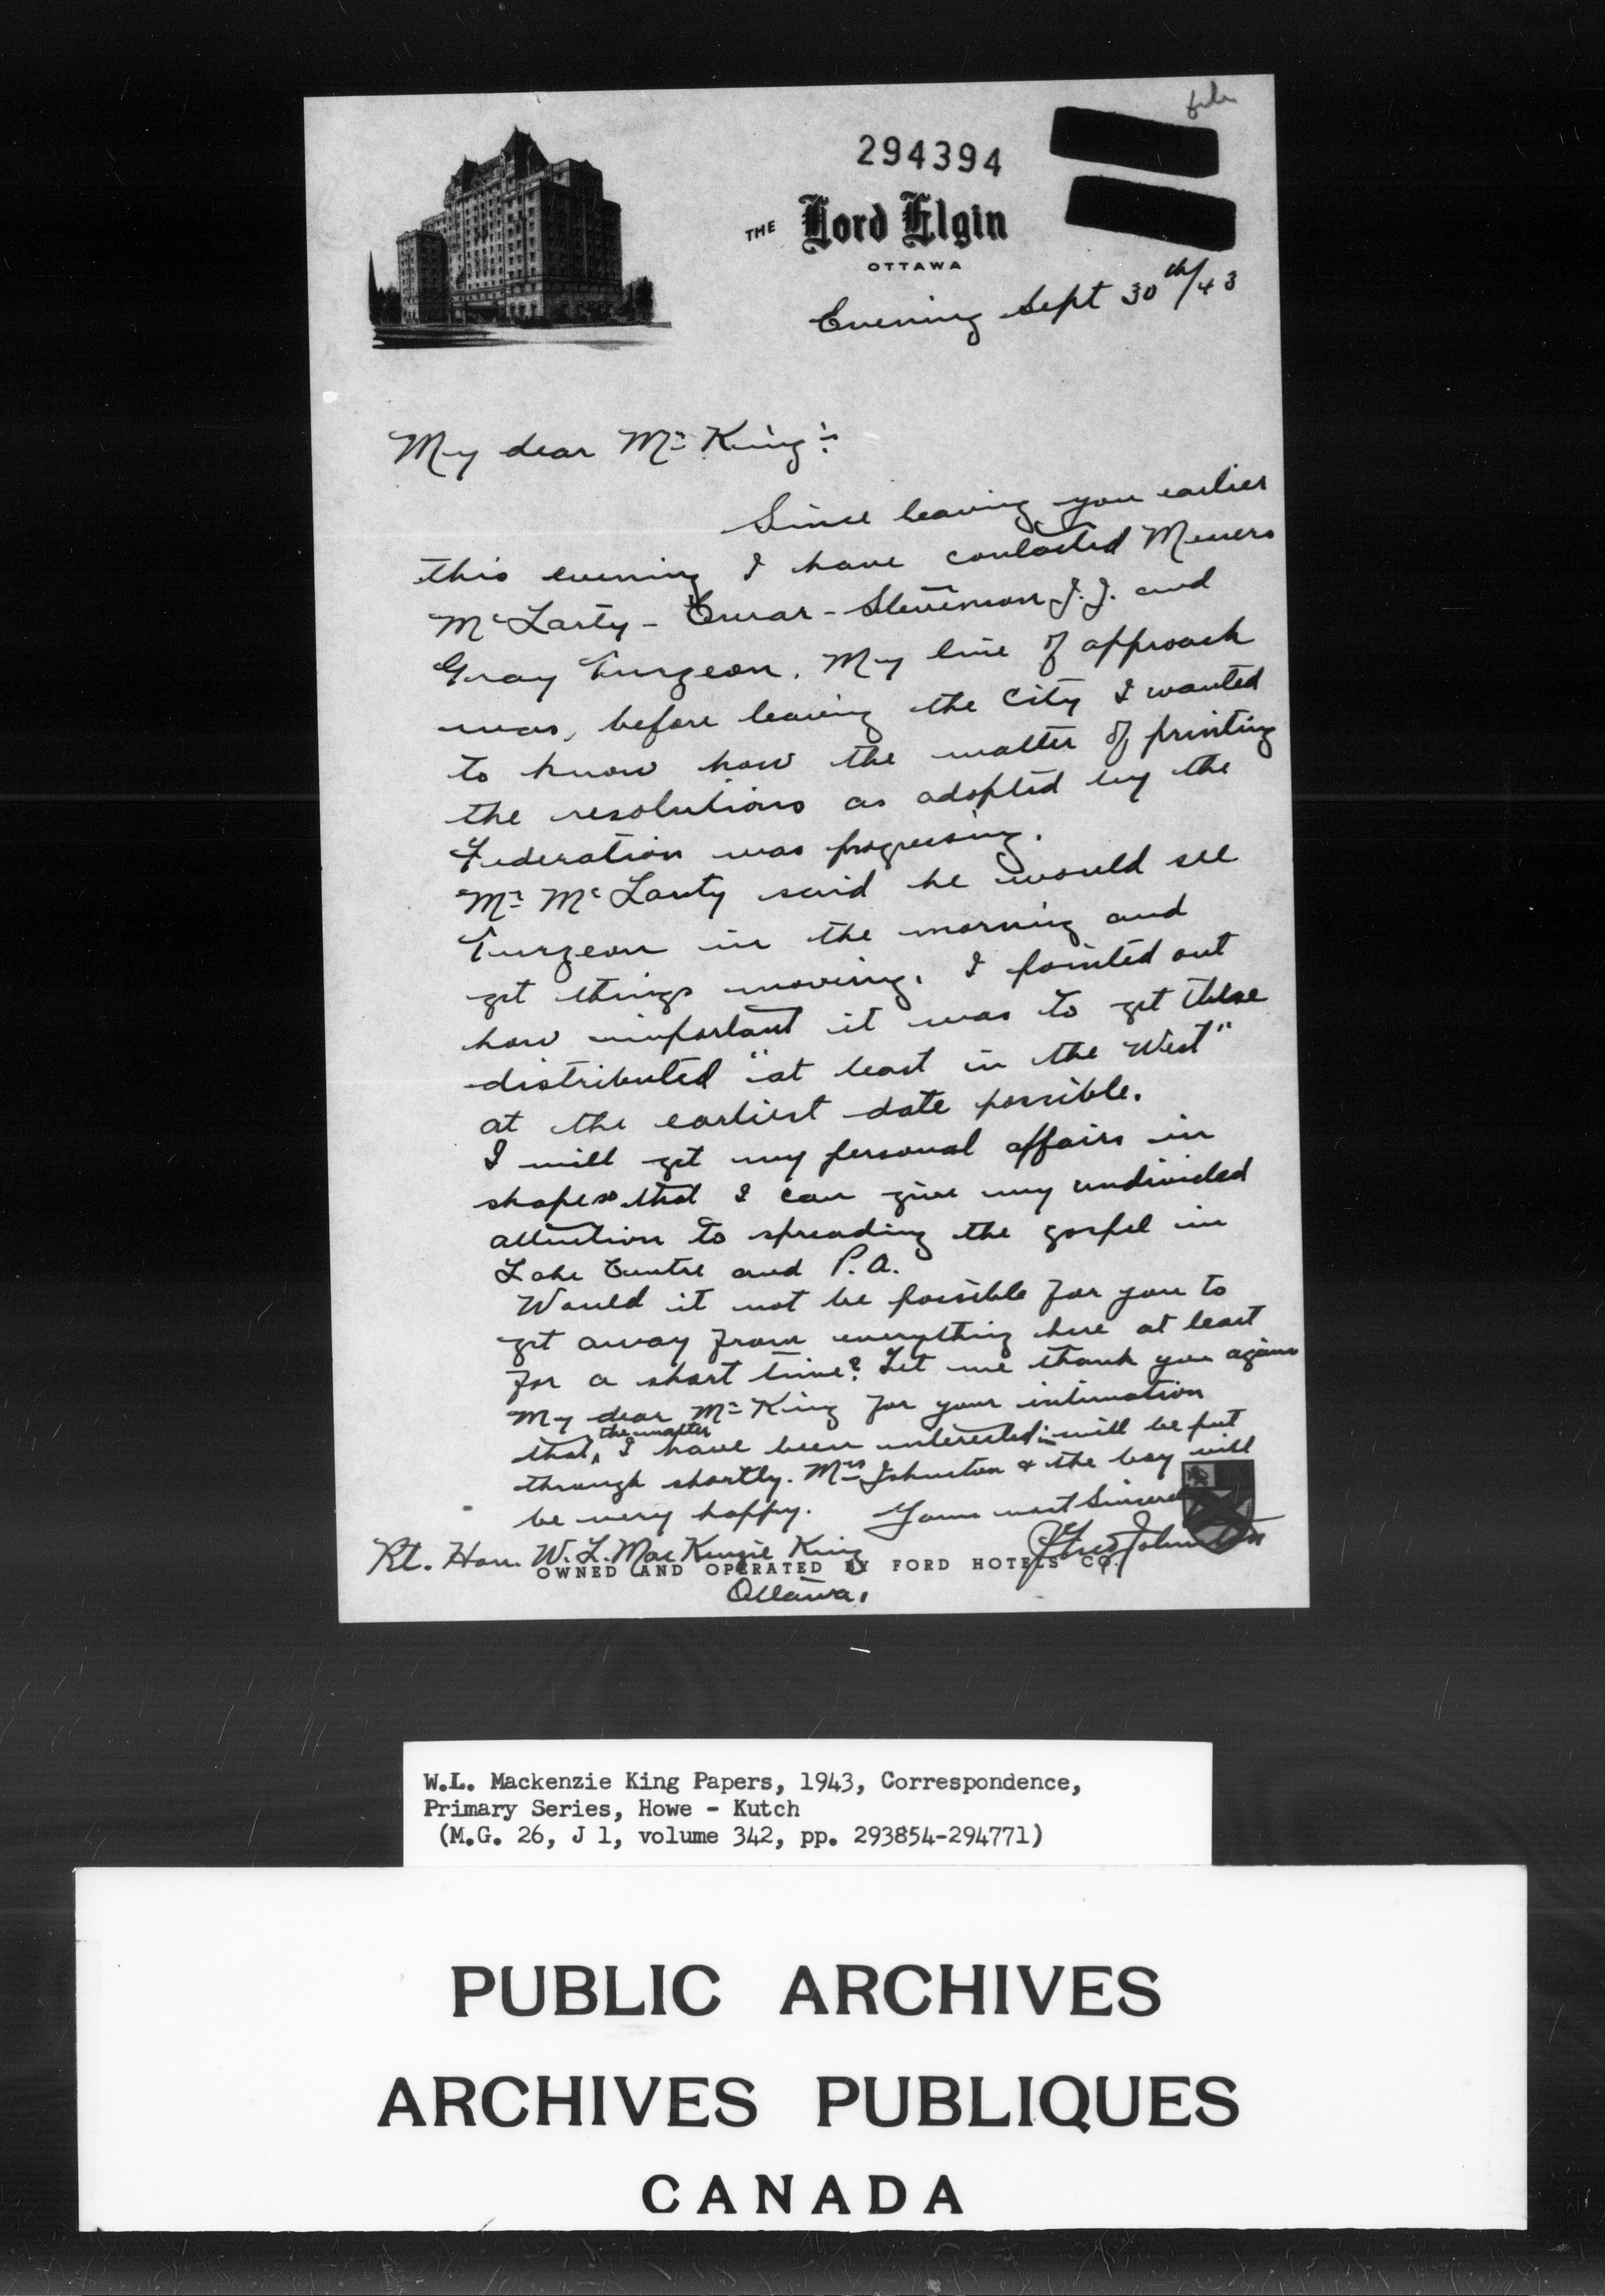 file
294394
THE Lord Elgin
OTTAWA
Evening Sept 30th/43
My dear Mr King:
Since leaving you earlier
this evening I have contacted Messrs
McLarty - - Stevenson J.J. and
Gray Turgeon. My line of approach
was, before leaving the City I wanted
to know how the matter of printing
the resolutions as adopted by the
Federation was progressing.
Mr McLarty said he would see
Turgeon in the morning and
get things moving. I pointed out
how important it was to get these
distributed "at least in the West"
at the earliest date possible.
I will get my personal affairs in
shape so that I can give my undivided
attention to spreading the gospel in
Lake Centre and P.A.
Would it not be possible for you to
get away from everything here at least
for a short time? Let me thank you again
My dear Mr King for your intimation
that, the matter I have been interested in will be put
through shortly. Mrs Johnston & the boy will
be very happy. Yours most Sincerely
Fred Johnston
Rt. Hon. W. L. MacKenzie King
OWNED AND OPERATED BY FORD HOTELS CO.
Ottawa.
W.L. Mackenzie King Papers, 1943, Correspondence,
Primary Series, Howe - Kutch
(M.G. 26, J 1, volume 342, pp. 293854-294771)
PUBLIC ARCHIVES
ARCHIVES PUBLIQUES
CANADA